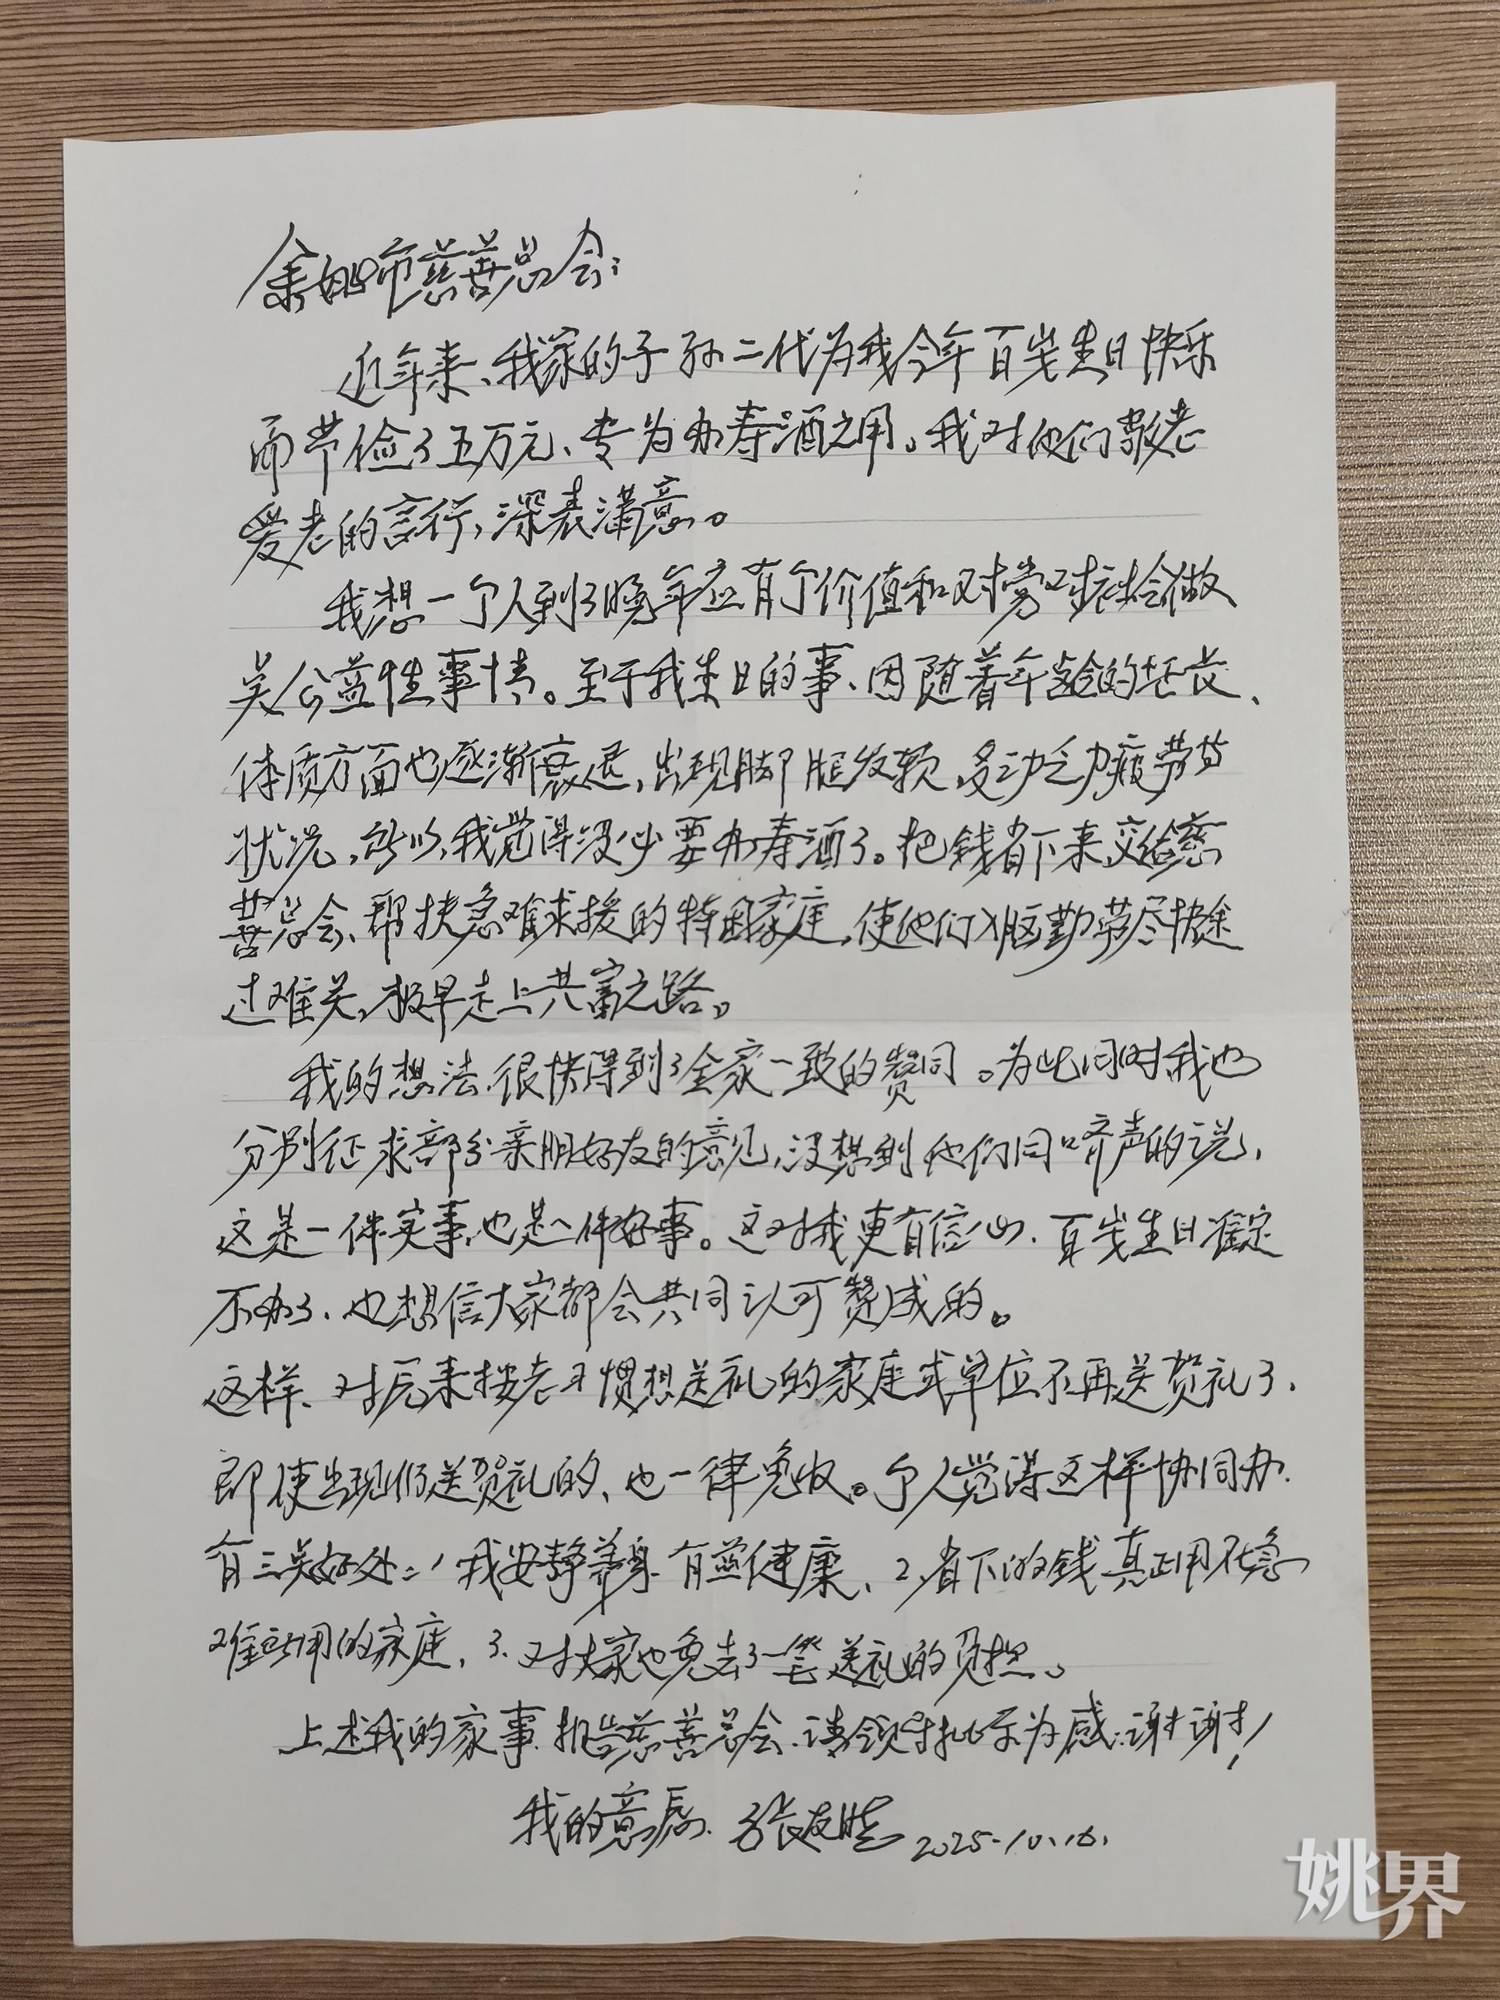 余姚市慈善总会:
近年来、我家的子孙二代为我今年百岁生日快乐
而节俭了五万元、专为办寿酒之用。我对他们敬老
爱老的言行,深表满意。
我想一个人到了晚年应有个价值和对党对社会做
点公益性事情。至于我生日的事、因随着年龄的增长、
体质方面也逐渐衰退,出现脚腿发软,多动乏力疲劳
状况,所以,我觉得没必要办寿酒了。把钱省下来,交给慈
善总会、帮扶急难求援的特困家庭,使他们
过难关,极早走上共富之路。
我的想法,很快得到了全家一致的赞同。为此同时我也
分别征求部分亲朋好友的意见,没想到他们同口齐声的说,
这是一件实事,也是一件好事。这对我更有信心,百岁生日准定
不办了、也想信大家都会共同认可赞成的。
这样、对原来按老习惯想送礼的家庭或单位不再送贺礼了、
即使出现仍送贺礼的、也一律免收。个人觉得这样协同办、
有三点好处:1我安静养身有益健康、2,省下的钱真正用在急
难要用的家庭、3.对大家也免去了一笔送礼的负担。
上述我的家事.报告慈善总会.请领导批示为感.谢谢!
我的意愿. 张友 2025.10.16.
姚界